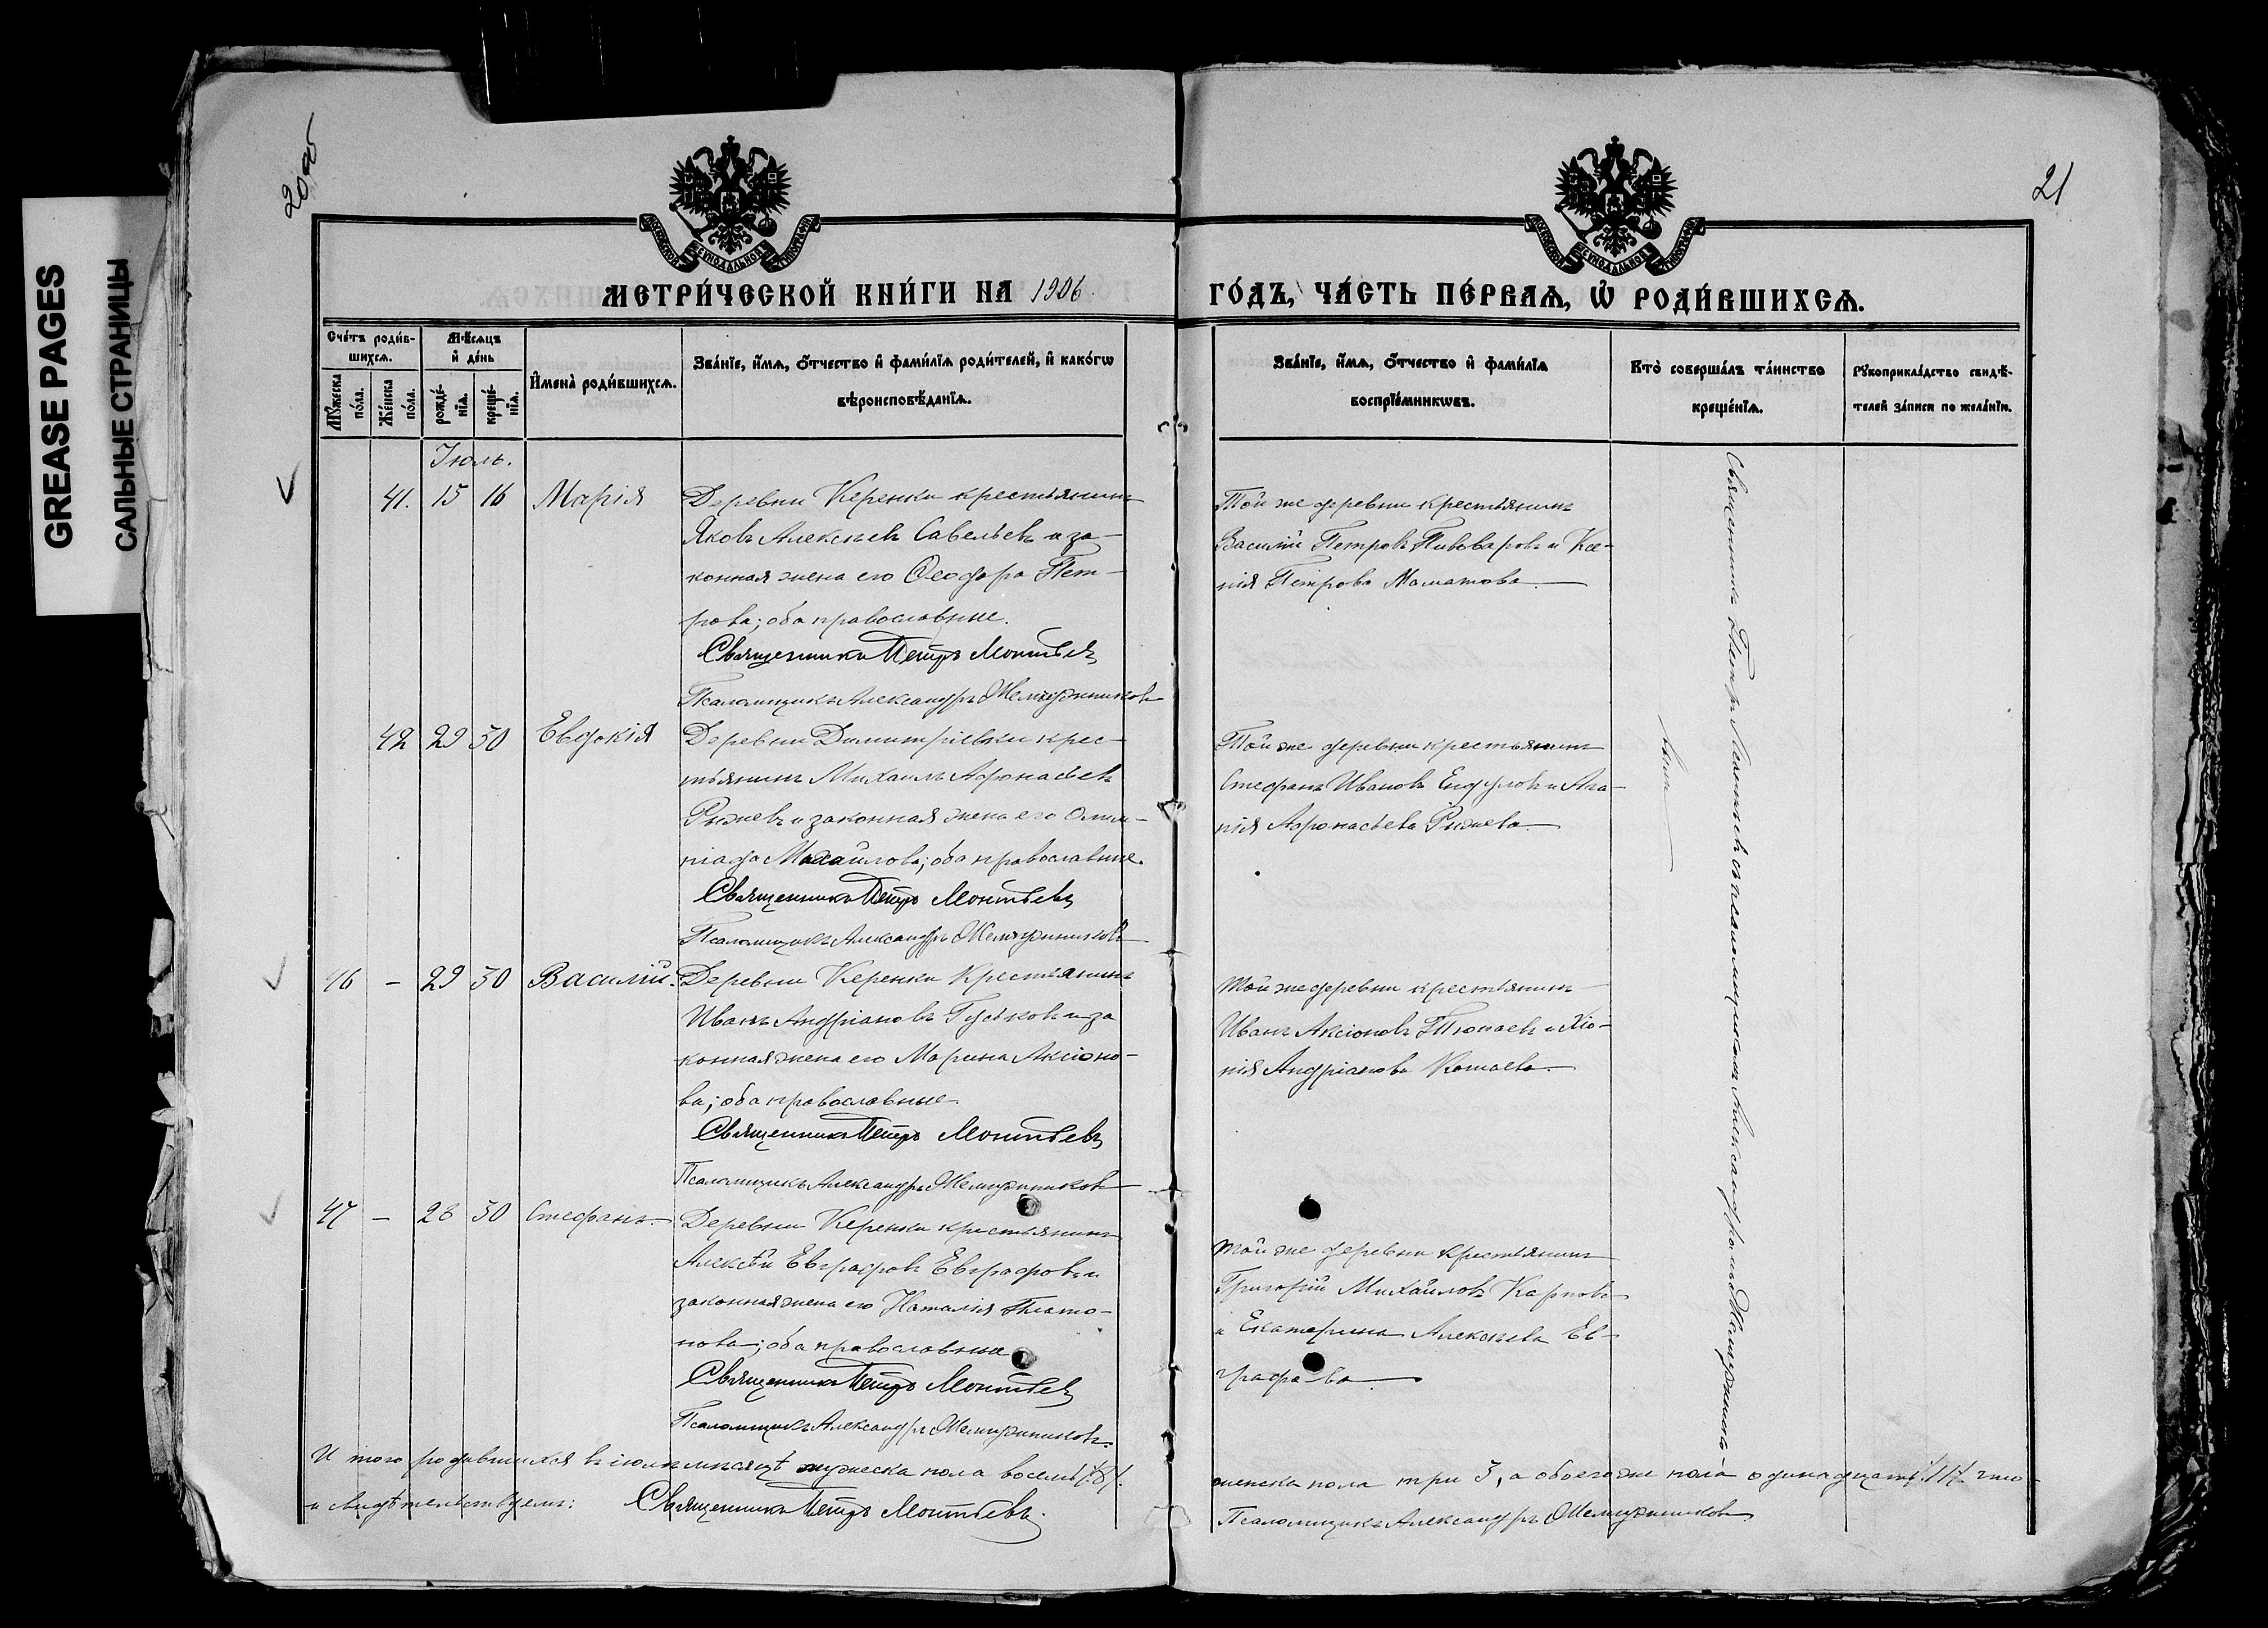 GREASE PAGES
САЛЬНЫЕ СТРАНИЦЫ
21
МЕТРИ́ЧЕСКОЙ КНИ́ГИ НА 1906.
ГО́ДЪ, ЧА́СТЬ ПЕ́РВАѦ, Ѽ РОДИ́ВШИХСѦ.
Сче́тъ роди́в-
шихсѧ.
Мѣ́сѧцъ
и҆ де́нь
Мꙋ́жеска по́ла.
Же́нска по́ла.
рожде́-
нїѧ.
креще́-
нїѧ.
И҆мена̀ роди́вшихсѧ.
Зва́нїе, и҆́мѧ, ѻ҆́тчество и҆ фами́лїѧ роди́телей, и҆ како́гѡ
вѣроисповѣ́данїѧ.
Зва́нїе, и҆́мѧ, ѻ҆́тчество и҆ фами́лїѧ
воспрїе́мникѡвъ.
Кто̀ соверша́лъ та́инство
креще́нїѧ.
Рꙋкоприкла́дство свидѣ́-
телей за́писи по жела́нїю.
Іюль.
41. 15 16 Марія
Деревни Керенки крестьянинъ
Яковъ Алексѣевъ Савельевъ и за-
конная жена его Ѳеодора Пет-
рова; оба православные.
Священникъ Петръ
Псаломщикъ Александръ Жемчужниковъ
Той же деревни крестьянинъ
Василій Петровъ Пивоваровъ и Ксе-
нія Петрова Маматова
42 29 30 Евдокія
Деревни Димитріевки крес-
тьянинъ Михаилъ Афонасьевъ
Рыжевъ и законная жена его Олим-
піада Михайлова; оба православные.
Священникъ Петръ
Псаломщикъ Александръ Жемчужниковъ
Той же деревни крестьянинъ
Стефанъ Ивановъ и Ага-
пія Афонасьева Рыжева
46 – 29 30 Василій.
Деревни Керенки Крестьянинъ
Иванъ Андріановъ Гуськовъ и за
конная жена его Марина Аксіоно-
ва; оба православные
Священникъ Петръ
Псаломщикъ Александръ Жемчужниковъ
Той же деревни крестьянинъ
Иванъ Аксіоновъ и Хіо-
нія Андріанова
47 – 28 30 Стефанъ.
Деревни Керенки крестьянинъ
Алексѣй Евграфовъ Евграфовъ и
законная жена его Наталія Плато-
нова; оба православные
Священникъ Петръ
Псаломщикъ Александръ Жемчужниковъ.
Той же деревни крестьянинъ
Григорій Михайловъ Карповъ
и Екатерина Алексѣева Ев-
графова.
Священникъ Петръ съ псаломщикомъ Александромъ Жемчужни-
ковымъ
И того родившихся въ іюлѣ мѣсяцѣ мужеска пола восемь /8/.
женска пола три 3, а обоего же пола одинадцать /11/. что
и свидѣтельствуемъ: Священникъ Петръ
Псаломщикъ Александръ Жемчужниковъ